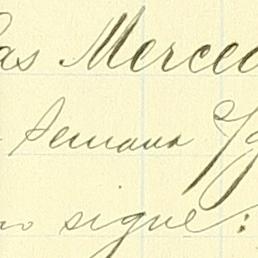 as Merced
Semana
o sigue: